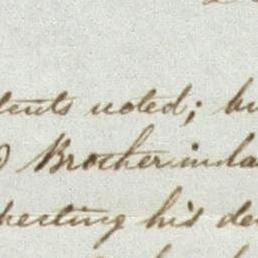 tents noted; bu
Brother in la
pecting his de